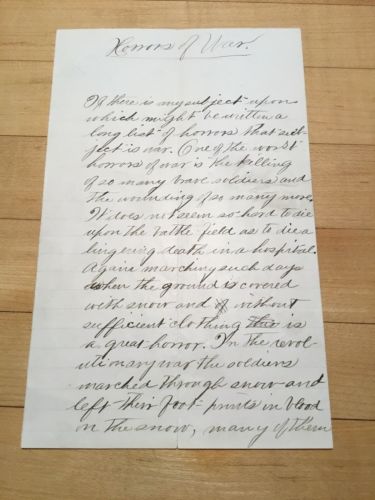 Horrors of War.
If there is my subject upon
which might be written a
long list of horrors that sub-
ject is war. One of the worst
horrors of war is the killing
of so many brave soldiers and
the wounding of so many more.
It does not seem so hard to die
upon the battle field as to die a
lingering death in a hospital.
Again marching such days
when the ground is covered
with snow and without
sufficient clothing is
a great horror. In the revol-
utionary war the soldiers
marched through snow and
left their foot prints in blood
on the snow, many of them